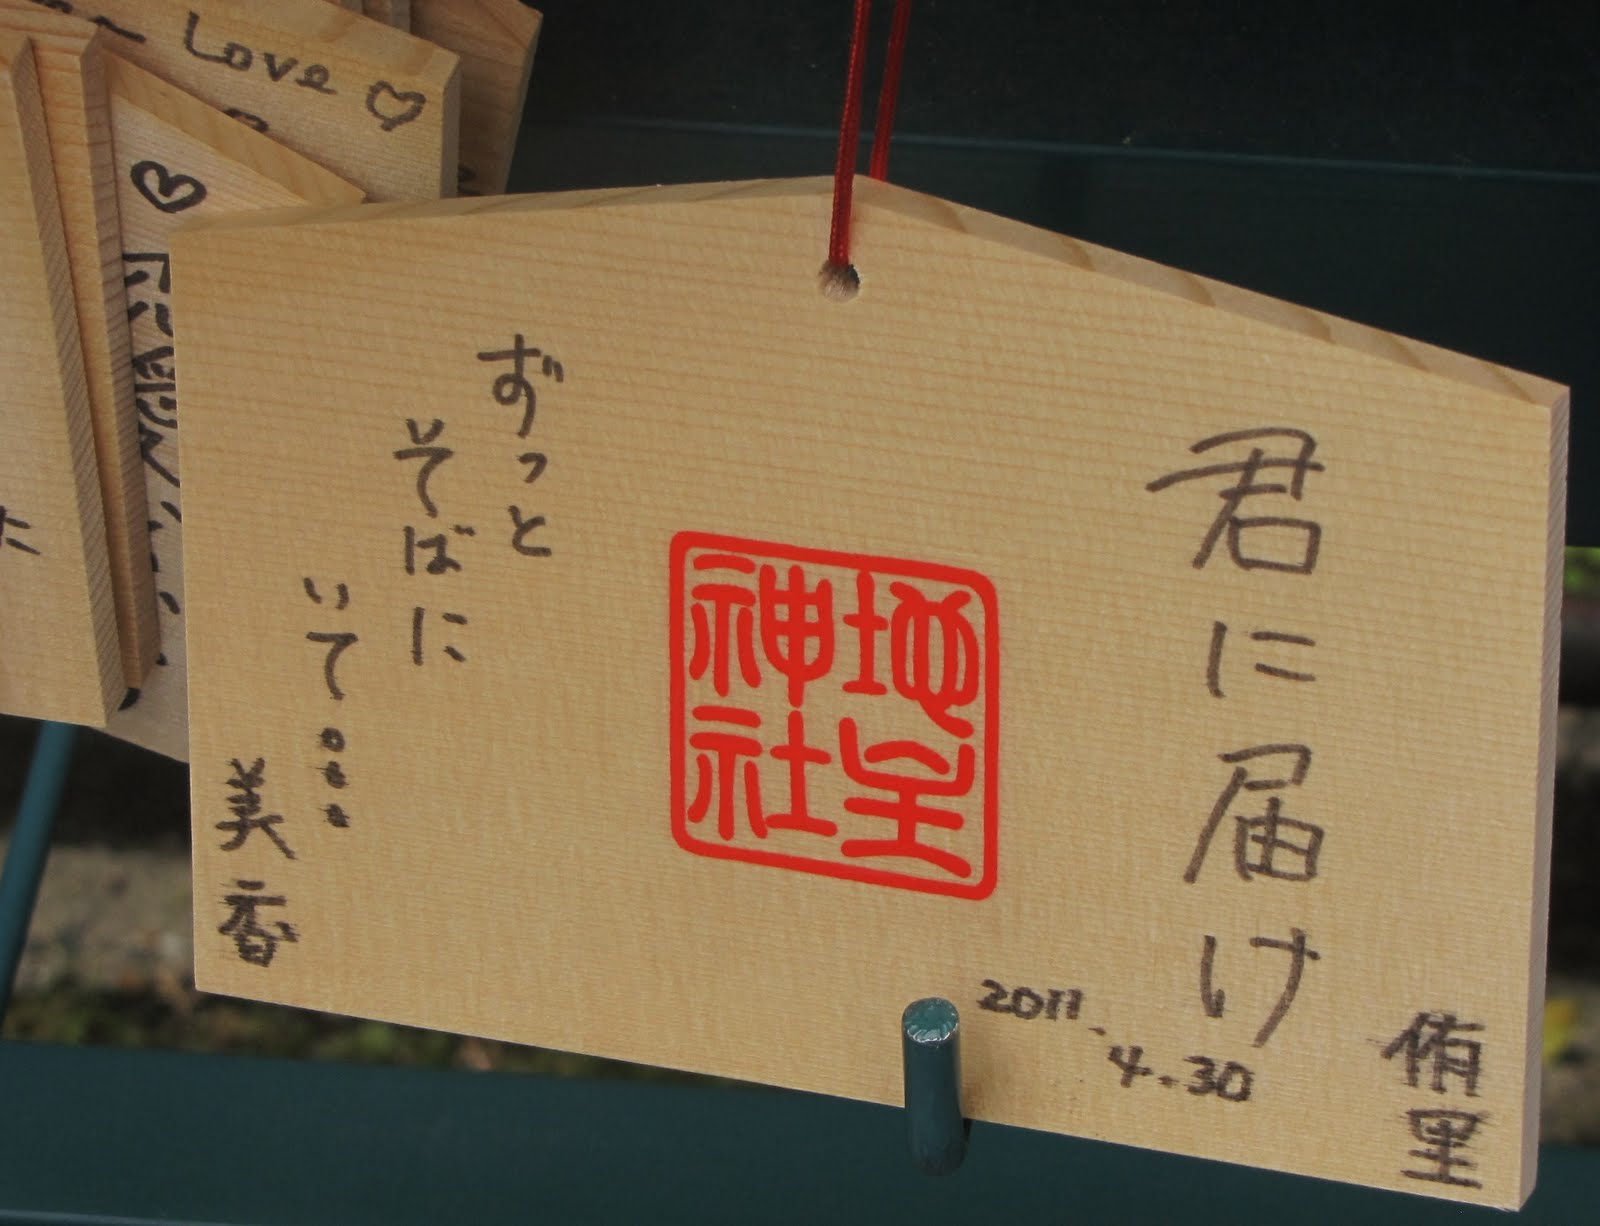 君に届け
侑里
2011.
4.30
地主
神社
ずっと
そばに
いて...
美香
Love ♡
♡
た